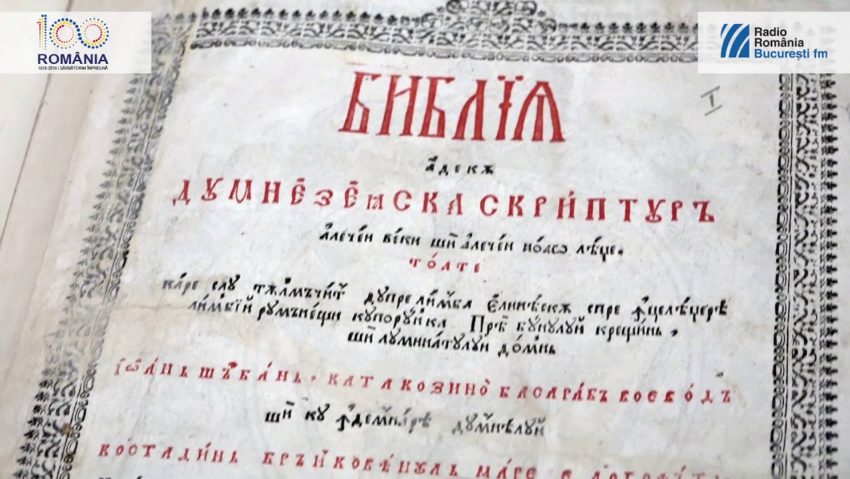 100
ROMÂNIA
1918-2018 | SĂRBĂTORIM ÎMPREUNĂ
Radio
România
București fm
БИБЛЇѦ
І
адекѫ
ДꙊМНЕЗЕꙖСКА СКРИПТꙊРЪ
алечѐй векй шѝ алечѐй ноаѡ лѣџе.
ТОАТЕ
каре сау тѫлмъчит дупре лимба елинѣскѫ спре ꙟцелѣџерѣ
лимбїй румънещи купорунка Прѣ бунулуй крещинь,
шѝ луминатулуй домнь
ІѠАНЬ ШЪРБАНЬ КАТАКОЗИНО БАСАРАБЪ ВОЕВОДЪ
шѝ ку ꙟдемнарѣ думнѣлуй
КОСТАДИНЬ БРЪНКОВѢНꙊЛЬ МАРЕ